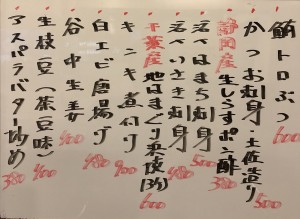 鮪トロぶつ 600
かつお刺身・土佐造り 500
静岡産 生しらすポン酢 380
活〆はまち刺身 500
活〆いさき刺身 480
千葉産 地はまぐり浜焼(3ケ) 600
キンキ煮付 900
白エビ唐揚げ 480
谷中生姜 400
生枝豆(茶豆味) 400
アスパラバター炒め 380